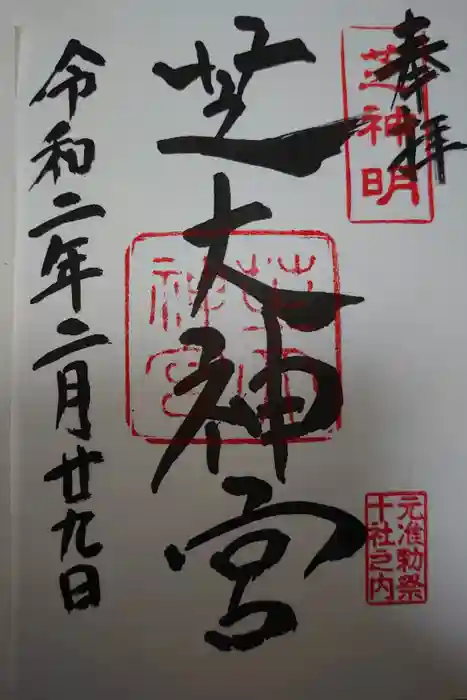 奉拝
芝神明
元准勅祭
十社之内
芝大神宮
令和二年二月廿九日